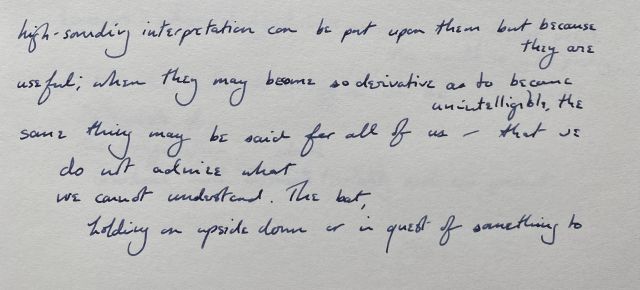 high-sounding interpretation can be put upon them but because
they are
useful; when they may become so derivative as to become
unintelligible, the
same thing may be said for all of us — that we
do not admire what
we cannot understand. The bat,
holding on upside down or in quest of something to